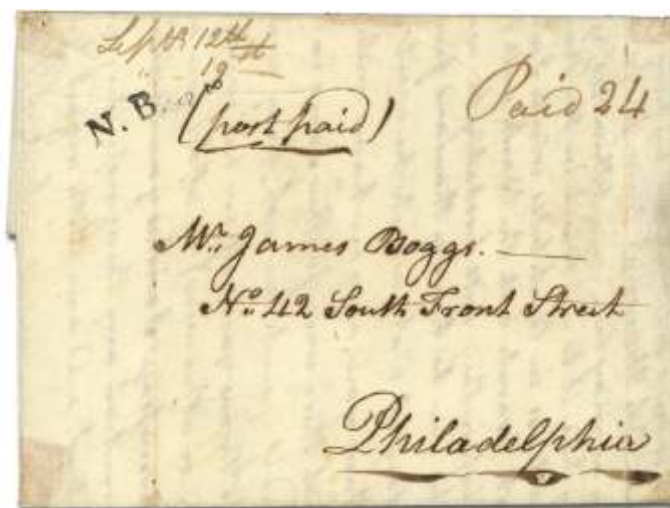 Sept. 12th
12
N. B.
(post paid)
Paid 24
Mr. James Boggs.
No. 42 South Front Street
Philadelphia